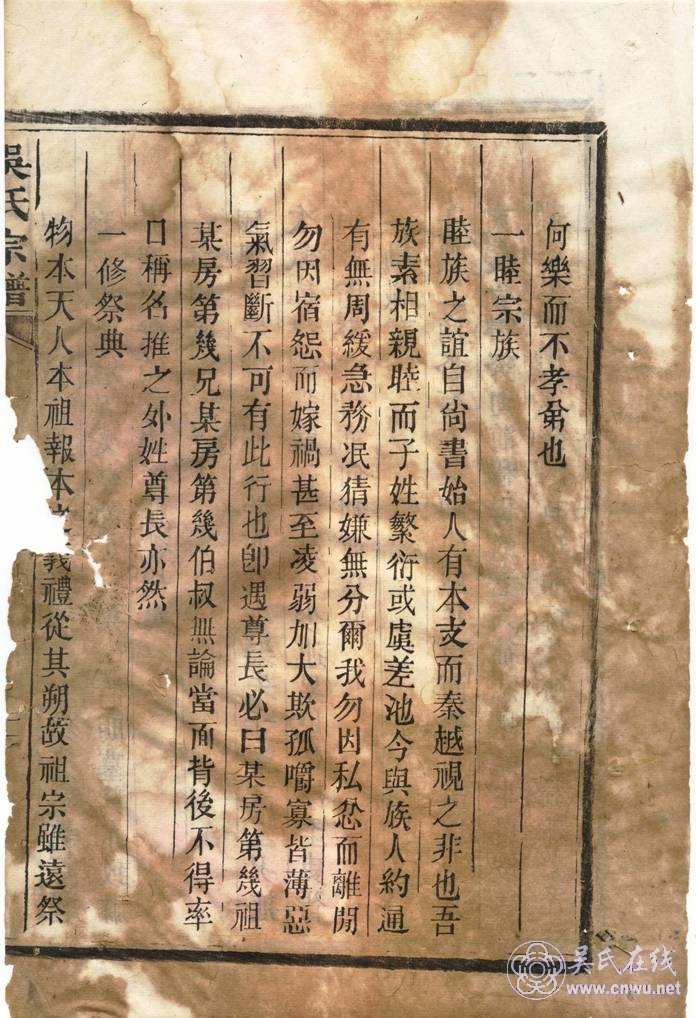 何樂而不孝弟也
一睦宗族
睦族之誼自尙書始人有本支而秦越視之非也吾
族素相親睦而子姓繁衍或虞差池今與族人約通
有無周緩急務泯猜嫌無分爾我勿因私忿而離閒
勿因宿怨而嫁禍甚至凌弱加大欺孤嚼寡皆薄惡
氣習斷不可有此行也卽遇尊長必曰某房第幾祖
某房第幾兄某房第幾伯叔無論當面背後不得率
口稱名推之外姓尊長亦然
一修祭典
物本天人本祖報本之義禮從其朔故祖宗雖遠祭
吳氏宗譜
吴氏在线
www.cnwu.net